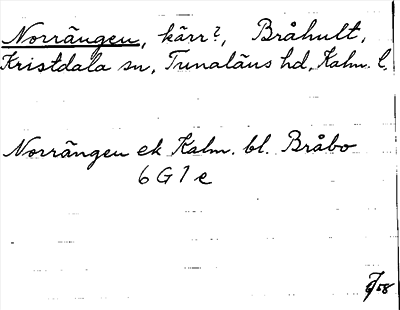 Norrängen, kärr?, Bråhult,
Kristdala sn, Tunaläns hd, Kalm. l.
Norrängen ek Kalm. bl. Bråbo
6 G 1 e